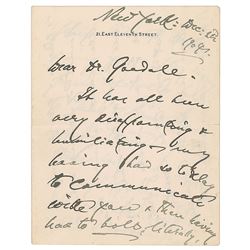 New York: Dec. 1st
1904.
21, EAST ELEVENTH STREET.
Dear Dr. Goodale.
It has all been
very disappointing &
humiliating - my
having had so to delay
to communicate
with you & then having
had to bolt, literally,